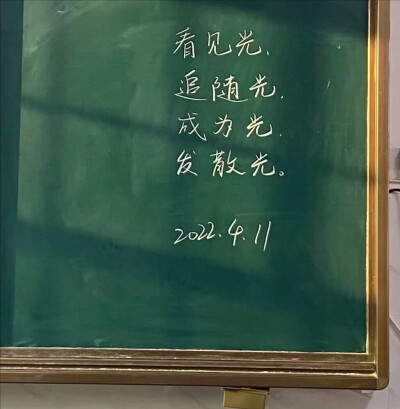 看见光、
追随光.
成为光.
发散光。
2022.4.11